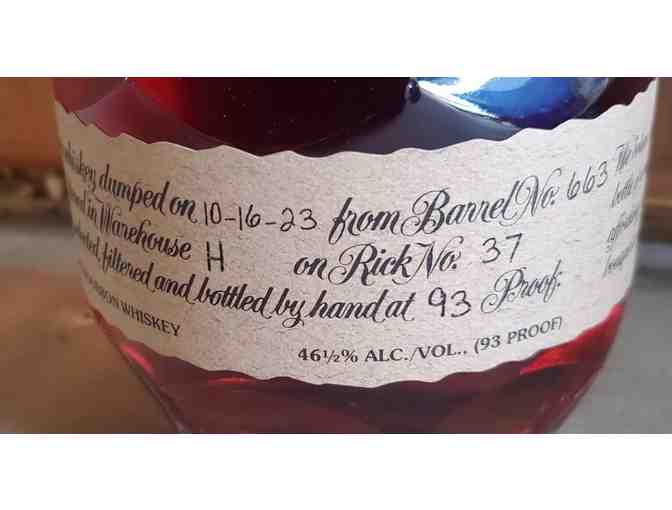 whiskey dumped on 10-16-23 from Barrel No. 663
in Warehouse H on Rick No. 37
filtered and bottled by hand at 93 Proof.
WHISKEY
46½% ALC./VOL., (93 PROOF)
The
bottle